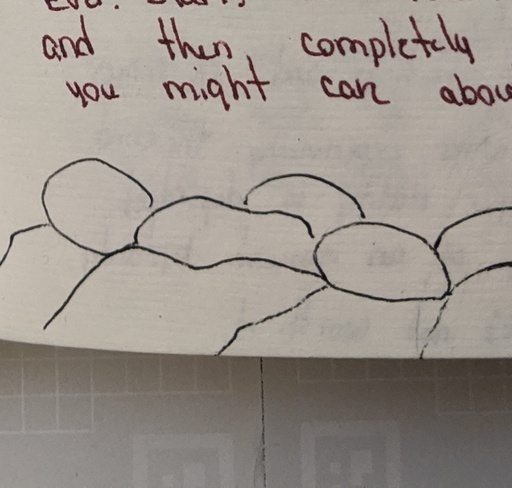 and then completely
you might care abou